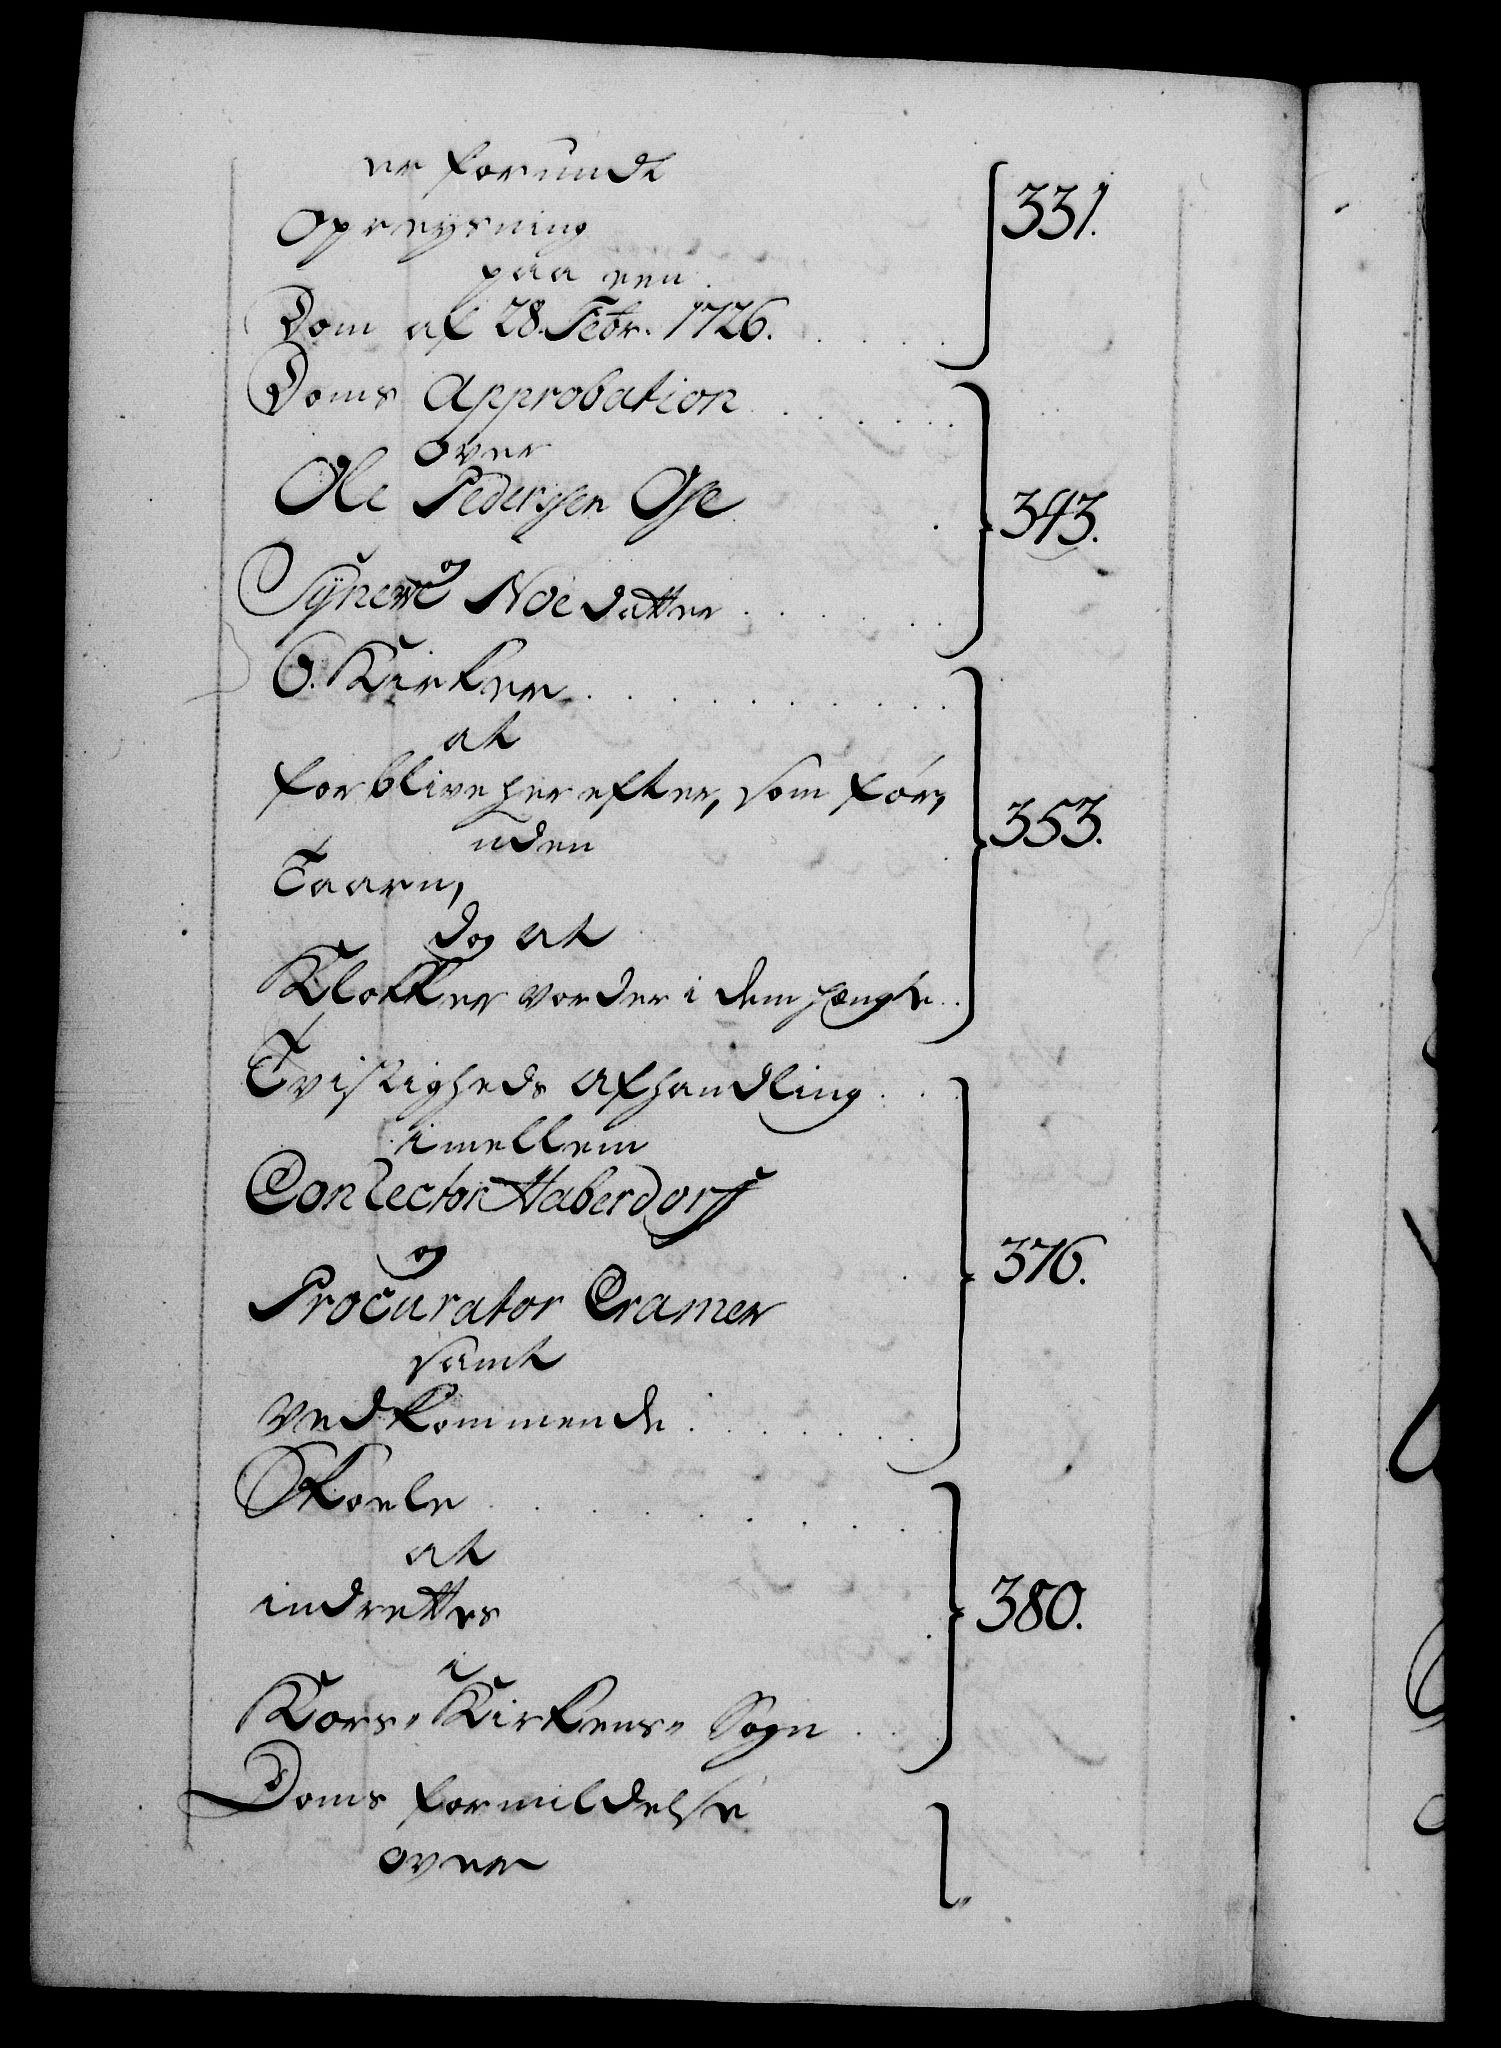 er forundt
Opreysning
paa een
Dom af 28. Febr. 1726. 331.
Doms Approbation
over
Ole Pederssen Ose
og
Noe datter 343.
O. Kirker
at
forblive herefter, som før,
uden
Taarn, 353.
dog at
Klokker vorder i dem hengte
Tvistigheds afhandling
imellem
Conrector Haberdorff
og
Procurator Cramer 376.
samt
vedkommende
Skoele
at
indrettes 380.
i
Kors-Kirkens-Sogn
Doms formildelse
over